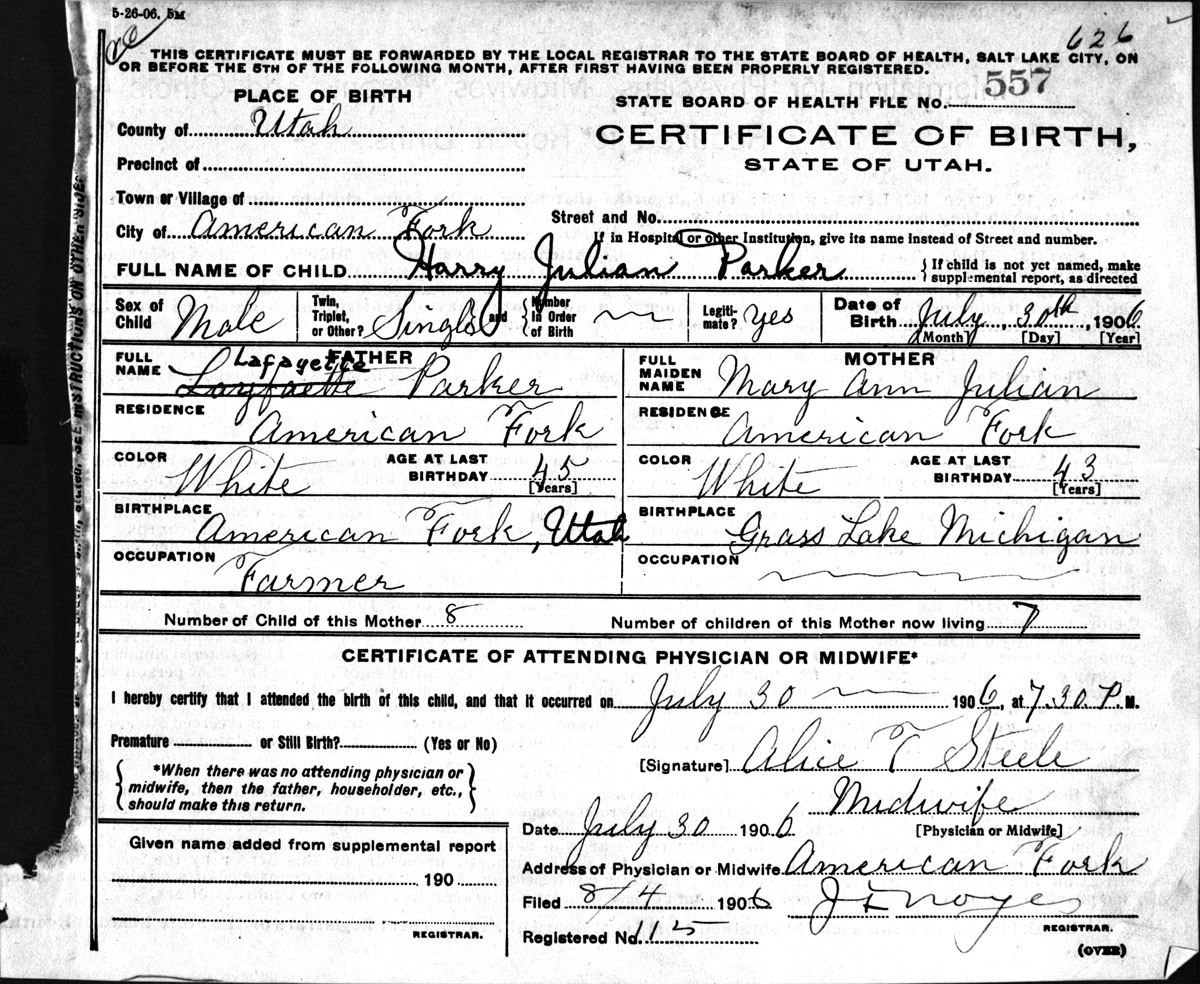 5-26-06. 5M
626
THIS CERTIFICATE MUST BE FORWARDED BY THE LOCAL REGISTRAR TO THE STATE BOARD OF HEALTH, SALT LAKE CITY, ON
OR BEFORE THE 5TH OF THE FOLLOWING MONTH, AFTER FIRST HAVING BEEN PROPERLY REGISTERED.
PLACE OF BIRTH
STATE BOARD OF HEALTH FILE No. 557
County of Utah
CERTIFICATE OF BIRTH,
STATE OF UTAH.
Precinct of
Town or Village of
Street and No.
City of American Fork
If in Hospital or other Institution, give its name instead of Street and number.
FULL NAME OF CHILD Harry Julian Parker { If child is not yet named, make supplemental report, as directed
Sex of Child Male Twin, Triplet, or Other? Single and { Number in Order of Birth Legiti-mate? Yes Date of Birth July, 30th, 1906
[Month] [Day] [Year]
FATHER MOTHER
FULL NAME Lafayette Layfaette Parker FULL MAIDEN NAME Mary Ann Julian
RESIDENCE American Fork RESIDENCE American Fork
COLOR White AGE AT LAST BIRTHDAY 45 [Years] COLOR White AGE AT LAST BIRTHDAY 43 [Years]
BIRTHPLACE American Fork, Utah BIRTHPLACE Grass Lake Michigan
OCCUPATION Farmer OCCUPATION
Number of Child of this Mother 8 Number of children of this Mother now living 7
CERTIFICATE OF ATTENDING PHYSICIAN OR MIDWIFE*
I hereby certify that I attended the birth of this child, and that it occurred on July 30 1906, at 7.30. P. M.
Premature or Still Birth? (Yes or No)
[Signature] Alice T Steele
{ *When there was no attending physician or
midwife, then the father, householder, etc.,
should make this return. }
Midwife
Date July 30 1906 [Physician or Midwife]
Given name added from supplemental report
Address of Physician or Midwife American Fork
190
Filed 8/4 1906 J F Noyes
REGISTRAR.
REGISTRAR.
Registered No. 115
(OVER)
SEE INSTRUCTIONS ON OTHER SIDE